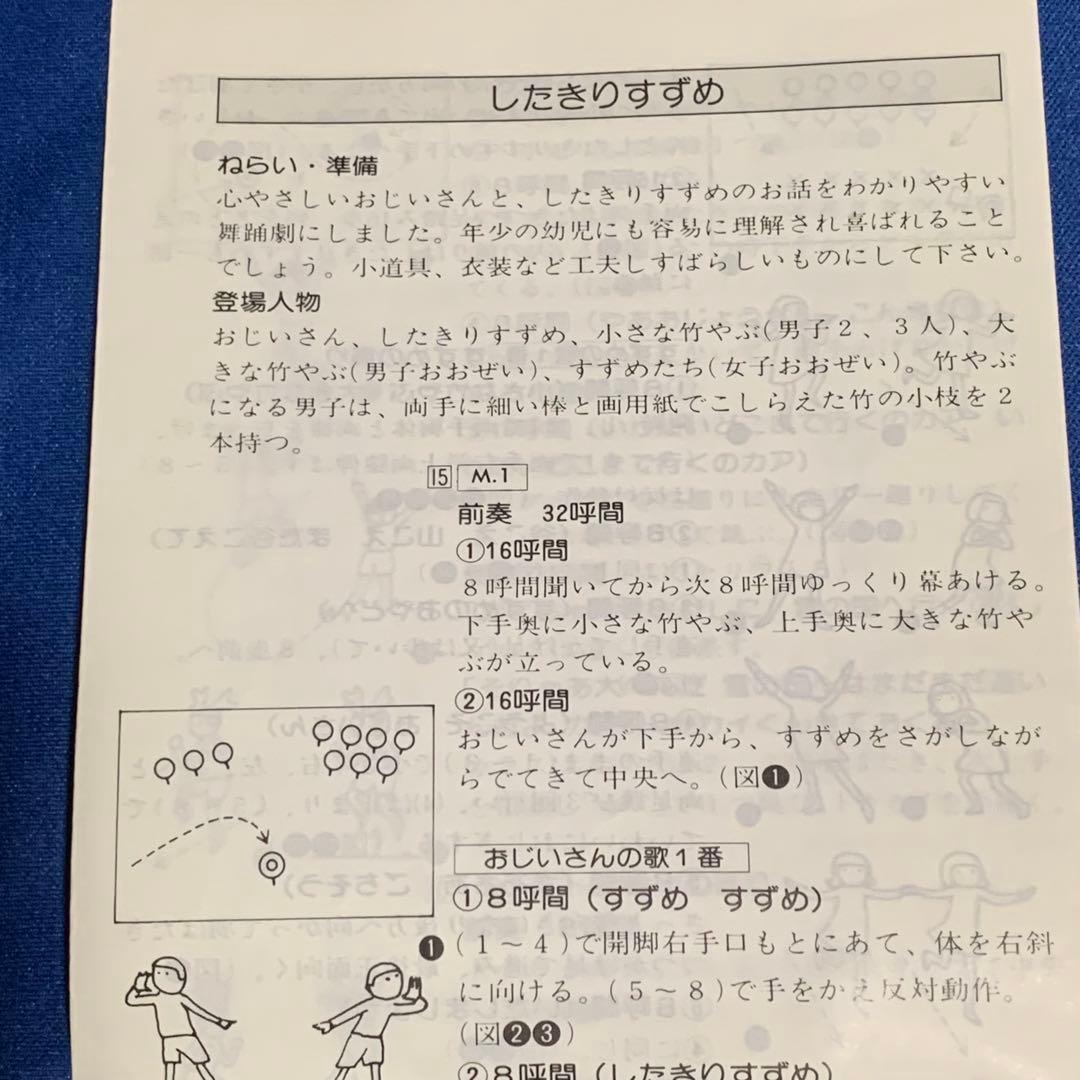 したきりすずめ
ねらい・準備
心やさしいおじいさんと、したきりすずめのお話をわかりやすい
舞踊劇にしました。年少の幼児にも容易に理解され喜ばれること
でしょう。小道具、衣装など工夫しすばらしいものにして下さい。
登場人物
おじいさん、したきりすずめ、小さな竹やぶ(男子2、3人)、大
きな竹やぶ(男子おおぜい)、すずめたち(女子おおぜい)。竹やぶ
になる男子は、両手に細い棒と画用紙でこしらえた竹の小枝を2
本持つ。
15 M.1
前奏 32呼間
①16呼間
8呼間聞いてから次8呼間ゆっくり幕あける。
下手奥に小さな竹やぶ、上手奥に大きな竹や
ぶが立っている。
②16呼間
おじいさんが下手から、すずめをさがしなが
らでてきて中央へ。(図❶)
おじいさんの歌1番
①8呼間(すずめ すずめ)
❶(1～4)で開脚右手口もとにあて、体を右斜
に向ける。(5～8)で手をかえ反対動作。
(図❷❸)
②8呼間(したきりすずめ)